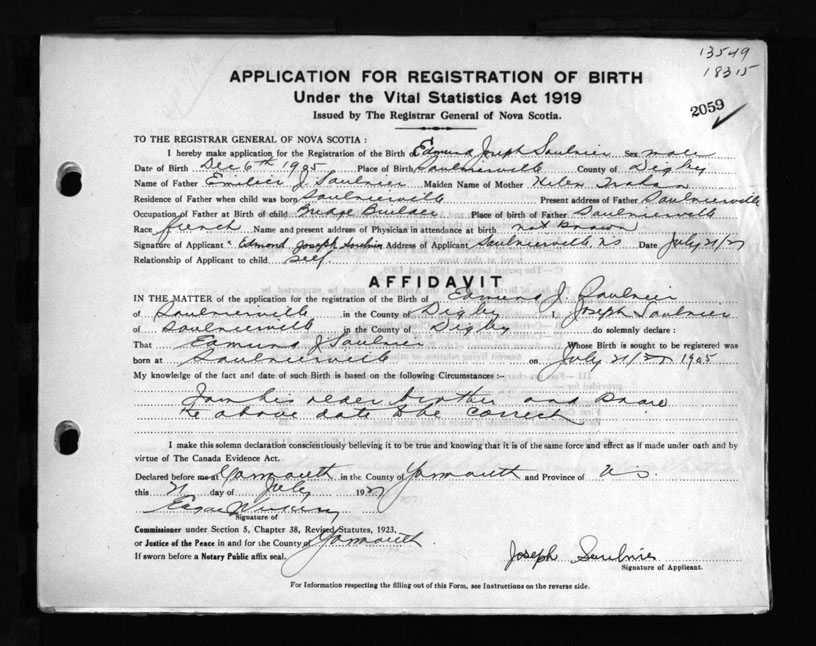 13549
18315
APPLICATION FOR REGISTRATION OF BIRTH
Under the Vital Statistics Act 1919
2059
Issued by The Registrar General of Nova Scotia.
TO THE REGISTRAR GENERAL OF NOVA SCOTIA :
I hereby make application for the Registration of the Birth of Edmund Joseph Saulnier Sex male
Date of Birth Dec 6th 1905 Place of Birth Saulnierville County of Digby
Name of Father J. Saulnier Maiden Name of Mother Helen
Residence of Father when child was born Saulnierville Present address of Father Saulnierville
Occupation of Father at Birth of child Bridge Builder Place of birth of Father Saulnierville
Race french Name and present address of Physician in attendance at birth not known
Signature of Applicant Edmond Joseph Address of Applicant Saulnierville, NS Date July 21/27
Relationship of Applicant to child self
AFFIDAVIT
IN THE MATTER of the application for the registration of the Birth of Edmund J. Saulnier
of Saulnierville in the County of Digby I, Joseph Saulnier
of Saulnierville in the County of Digby do solemnly declare :
That Edmund J Saulnier Whose Birth is sought to be registered was
born at Saulnierville on July 21/27 1905
My knowledge of the fact and date of such Birth is based on the following Circumstances :-
I am his older brother and
the above date to be correct
I make this solemn declaration conscientiously believing it to be true and knowing that it is of the same force and effect as if made under oath and by
virtue of The Canada Evidence Act.
Declared before me at Yarmouth in the County of Yarmouth and Province of NS.
this 21 day of July 1927
Signature of
Commissioner under Section 5, Chapter 38, Revised Statutes, 1923,
or Justice of the Peace in and for the County of Yarmouth
If sworn before a Notary Public affix seal.
Joseph Saulnier
Signature of Applicant.
For Information respecting the filling out of this Form, see Instructions on the reverse side.